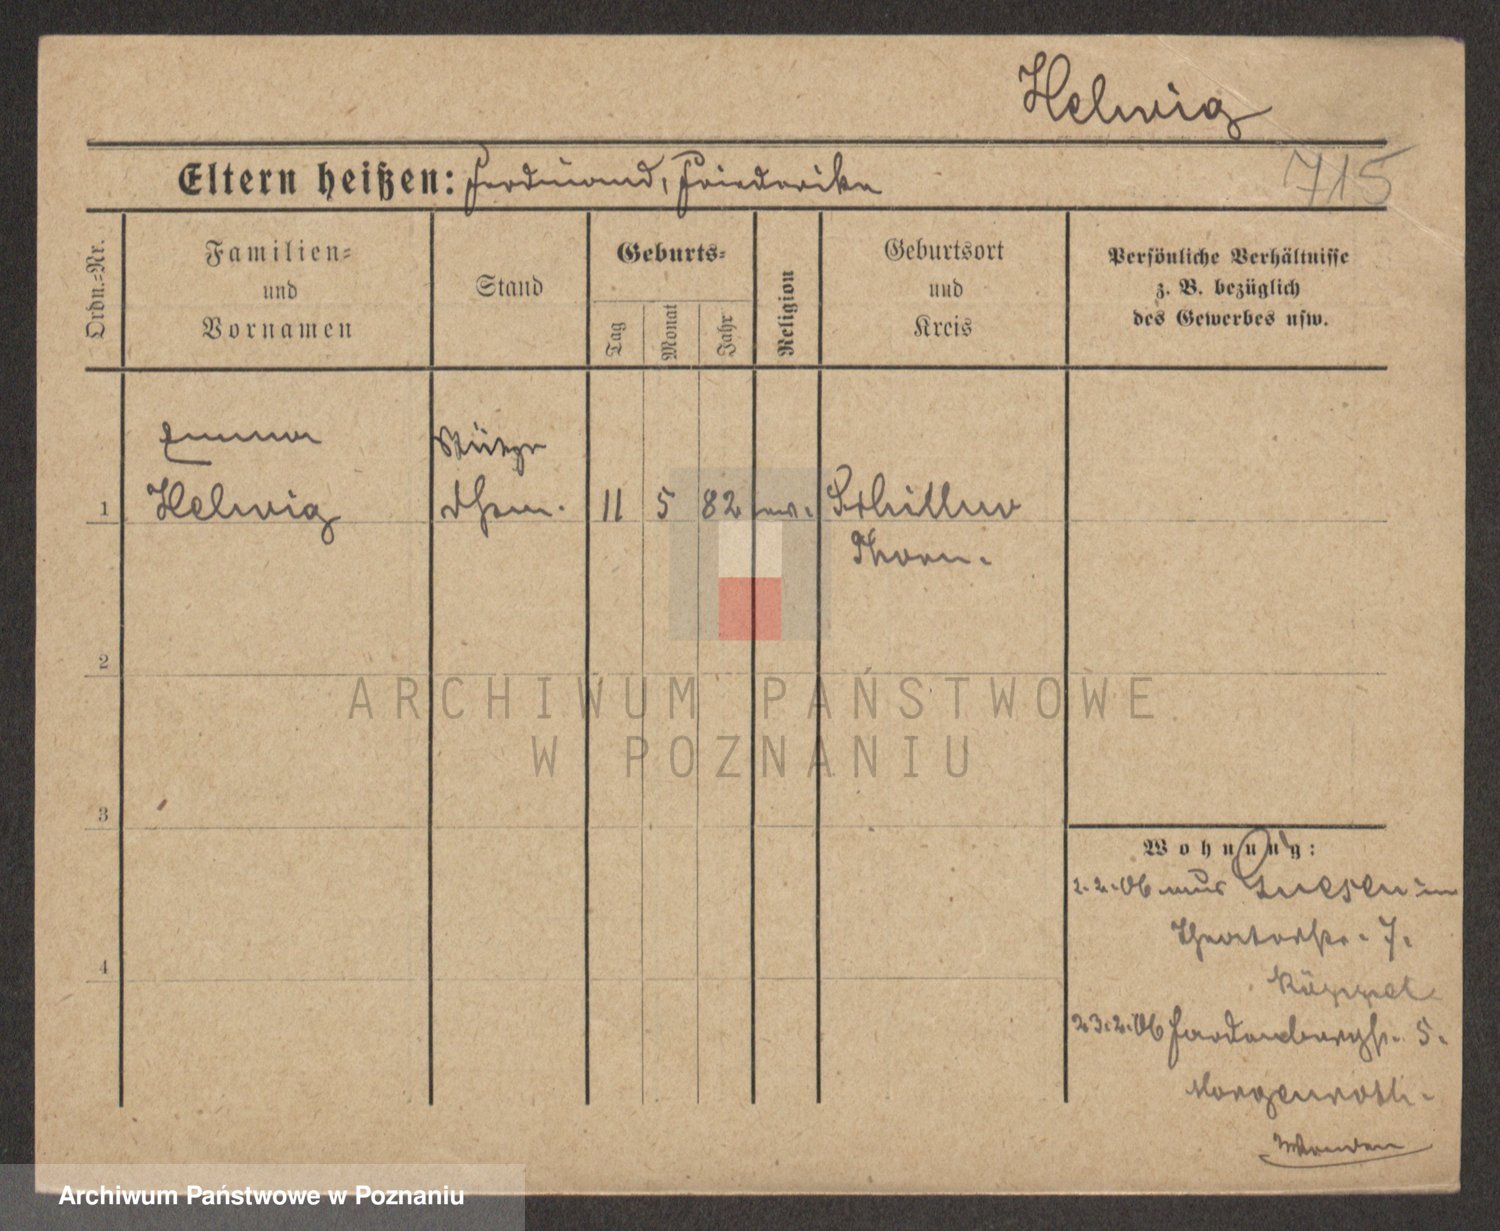 Helwig
715
Eltern heißen: Ferdinand, Friederike
Ordn.-Nr.
Familien-
und
Vornamen
Stand
Geburts-
Tag
Monat
Jahr
Religion
Geburtsort
und
Kreis
Persönliche Verhältnisse
z. B. bezüglich
des Gewerbes usw.
Emma
Stütze
1 Helwig 11 5 82 ev. Schillno
Thorn.
2
ARCHIWUM PAŃSTWOWE
W POZNANIU
3
Wohnung:
2.2.06 aus Gnesen in
Theaterstr. 7.
4
Küppel
23.2.06 Hardenbergstr. 5.
Morgenroth.
Wenden
Archiwum Państwowe w Poznaniu